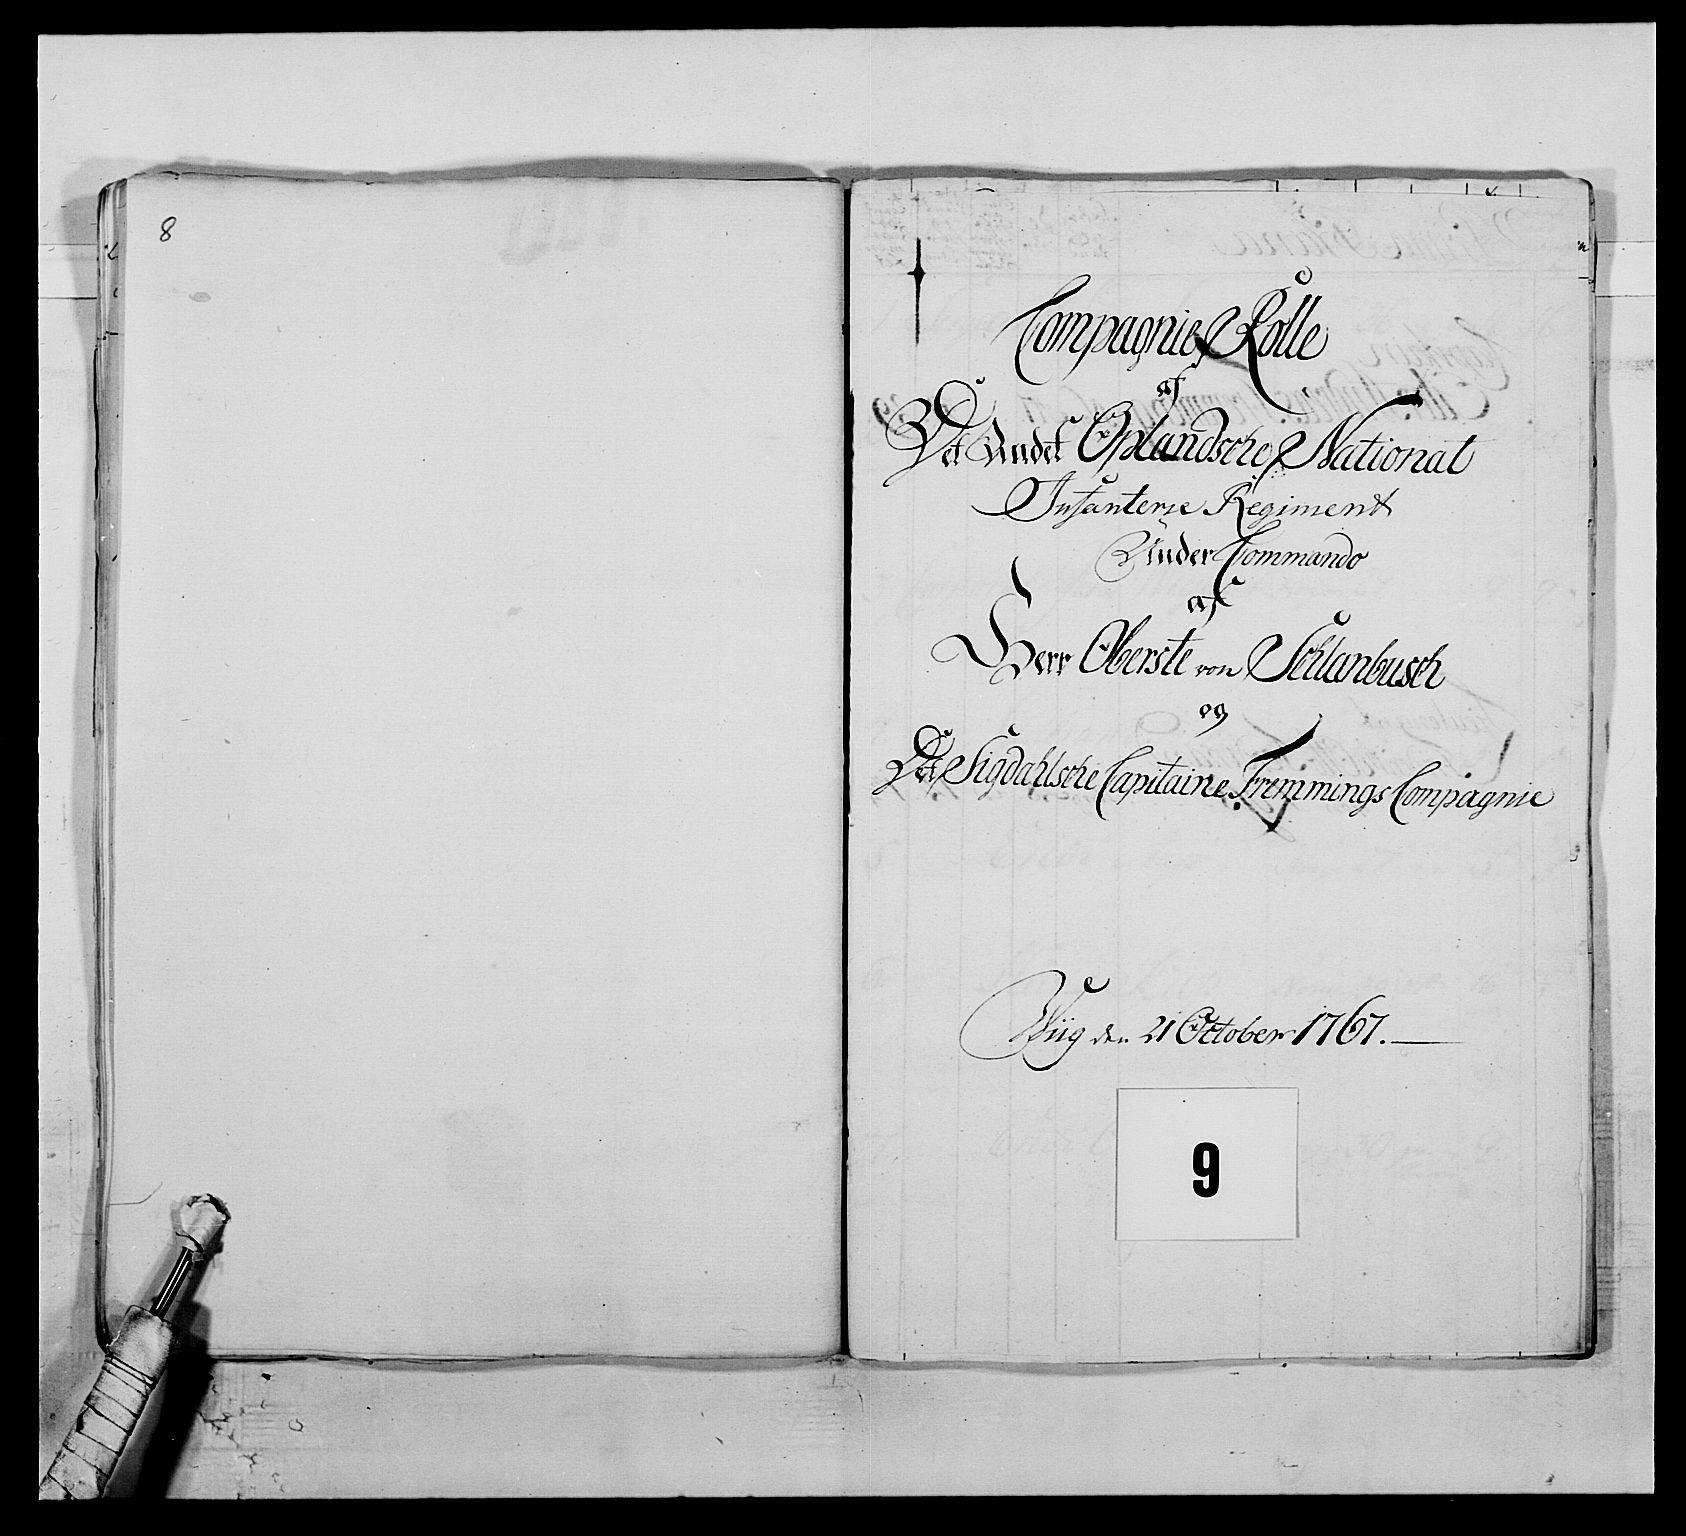 8
Compagnie Rolle
af
Det Andet Oplandsche National
Infanterie Regiment
Under Commando
af
Herr Oberste von Schlanbusch
og
Det Sigdahlsche Capitaine Fremmings Compagnie
Wiig den 21 October 1767.
9